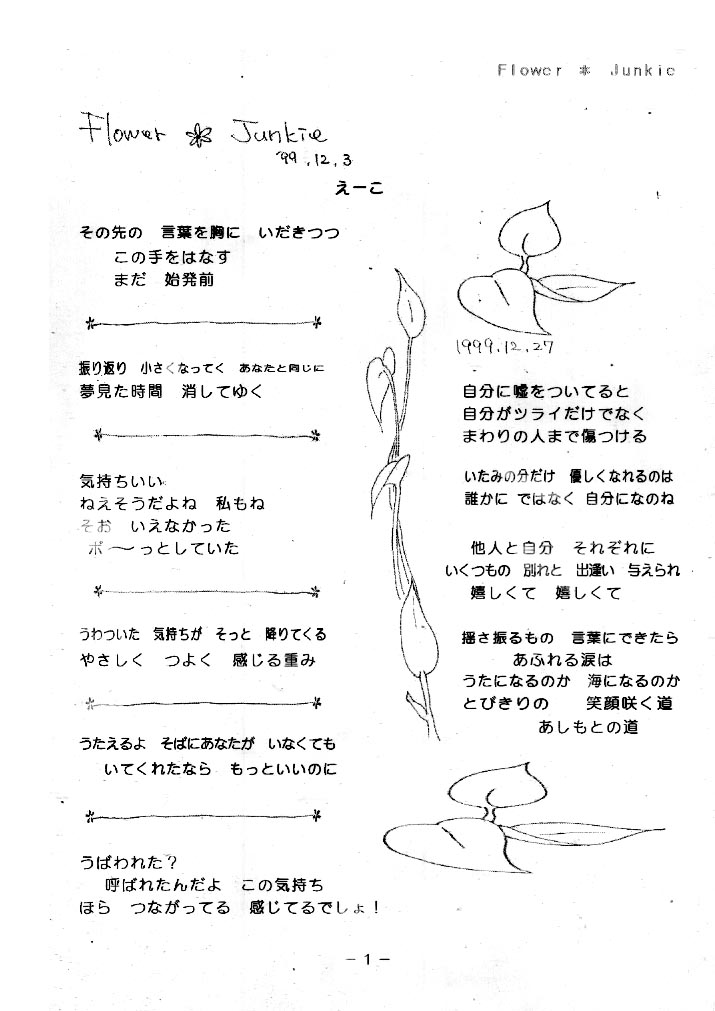 Flower ＊ Junkie
Flower ＊ Junkie
'99.12.3
えーこ
その先の　言葉を胸に　いだきつつ
この手をはなす
まだ　始発前
振り返り　小さくなってく　あなたと同じに
夢見た時間　消してゆく
気持ちいい
ねえそうだよね　私もね
そお　いえなかった
ボ～っとしていた
うわついた　気持ちが　そっと　降りてくる
やさしく　つよく　感じる重み
うたえるよ　そばにあなたが　いなくても
いてくれたなら　もっといいのに
うばわれた？
呼ばれたんだよ　この気持ち
ほら　つながってる　感じてるでしょ！
1999.12.27
自分に嘘をついてると
自分がツライだけでなく
まわりの人まで傷つける
いたみの分だけ　優しくなれるのは
誰かに　ではなく　自分になのね
他人と自分　それぞれに
いくつもの　別れと　出逢い　与えられ
嬉しくて　嬉しくて
揺さ振るもの　言葉にできたら
あふれる涙は
うたになるのか　海になるのか
とびきりの　　笑顔咲く道
あしもとの道
－1－